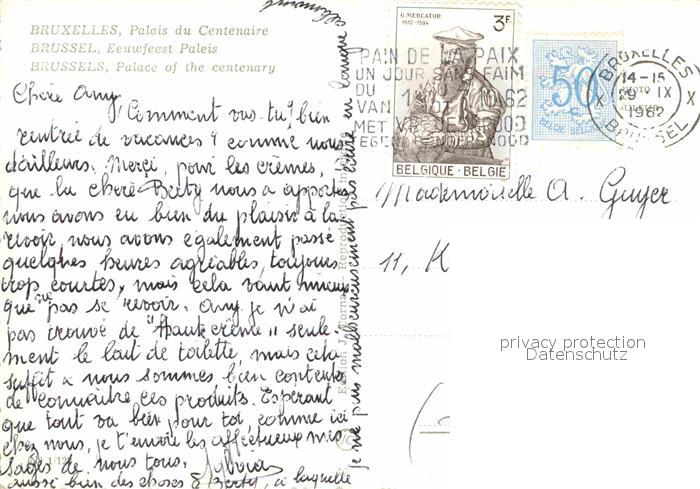 BRUXELLES, Palais du Centenaire
BRUSSEL, Eeuwfeest Paleis
BRUSSELS, Palace of the centenary
Chère Any,
Comment vas-tu? bien
rentrée de vacances? comme nous
d'ailleurs. Merci, pour les crèmes,
que la chère Betty nous a apportés
nous avons eu bien du plaisir à la
revoir, nous avons également passé
quelques heures agréables, toujours
trop courtes, mais cela vaut mieux
que ne pas se revoir. Any je n'ai
pas trouvé de "Haute crème" seule-
ment le lait de toilette, mais cela
suffit & nous sommes bien contentes
de connaître ces produits. Espérant
que tout va bien pour toi, comme ici
chez nous, je t'envoie les affectueux mes-
sages de nous tous.
aussi bien des choses à Betty, à laquelle
je ne puis malheureusement pas écrire en langue
allemande
G. MERCATOR
1512-1594
3F
BELGIQUE-BELGIE
50
BELGIE-BELGIQUE
PAIN DE LA PAIX
UN JOUR SANS FAIM
DU
VAN 1962
MET
BRUXELLES
14-15
29 IX
1962
BRUSSEL
Mademoiselle A. Guyer
11, K
privacy protection
Datenschutz